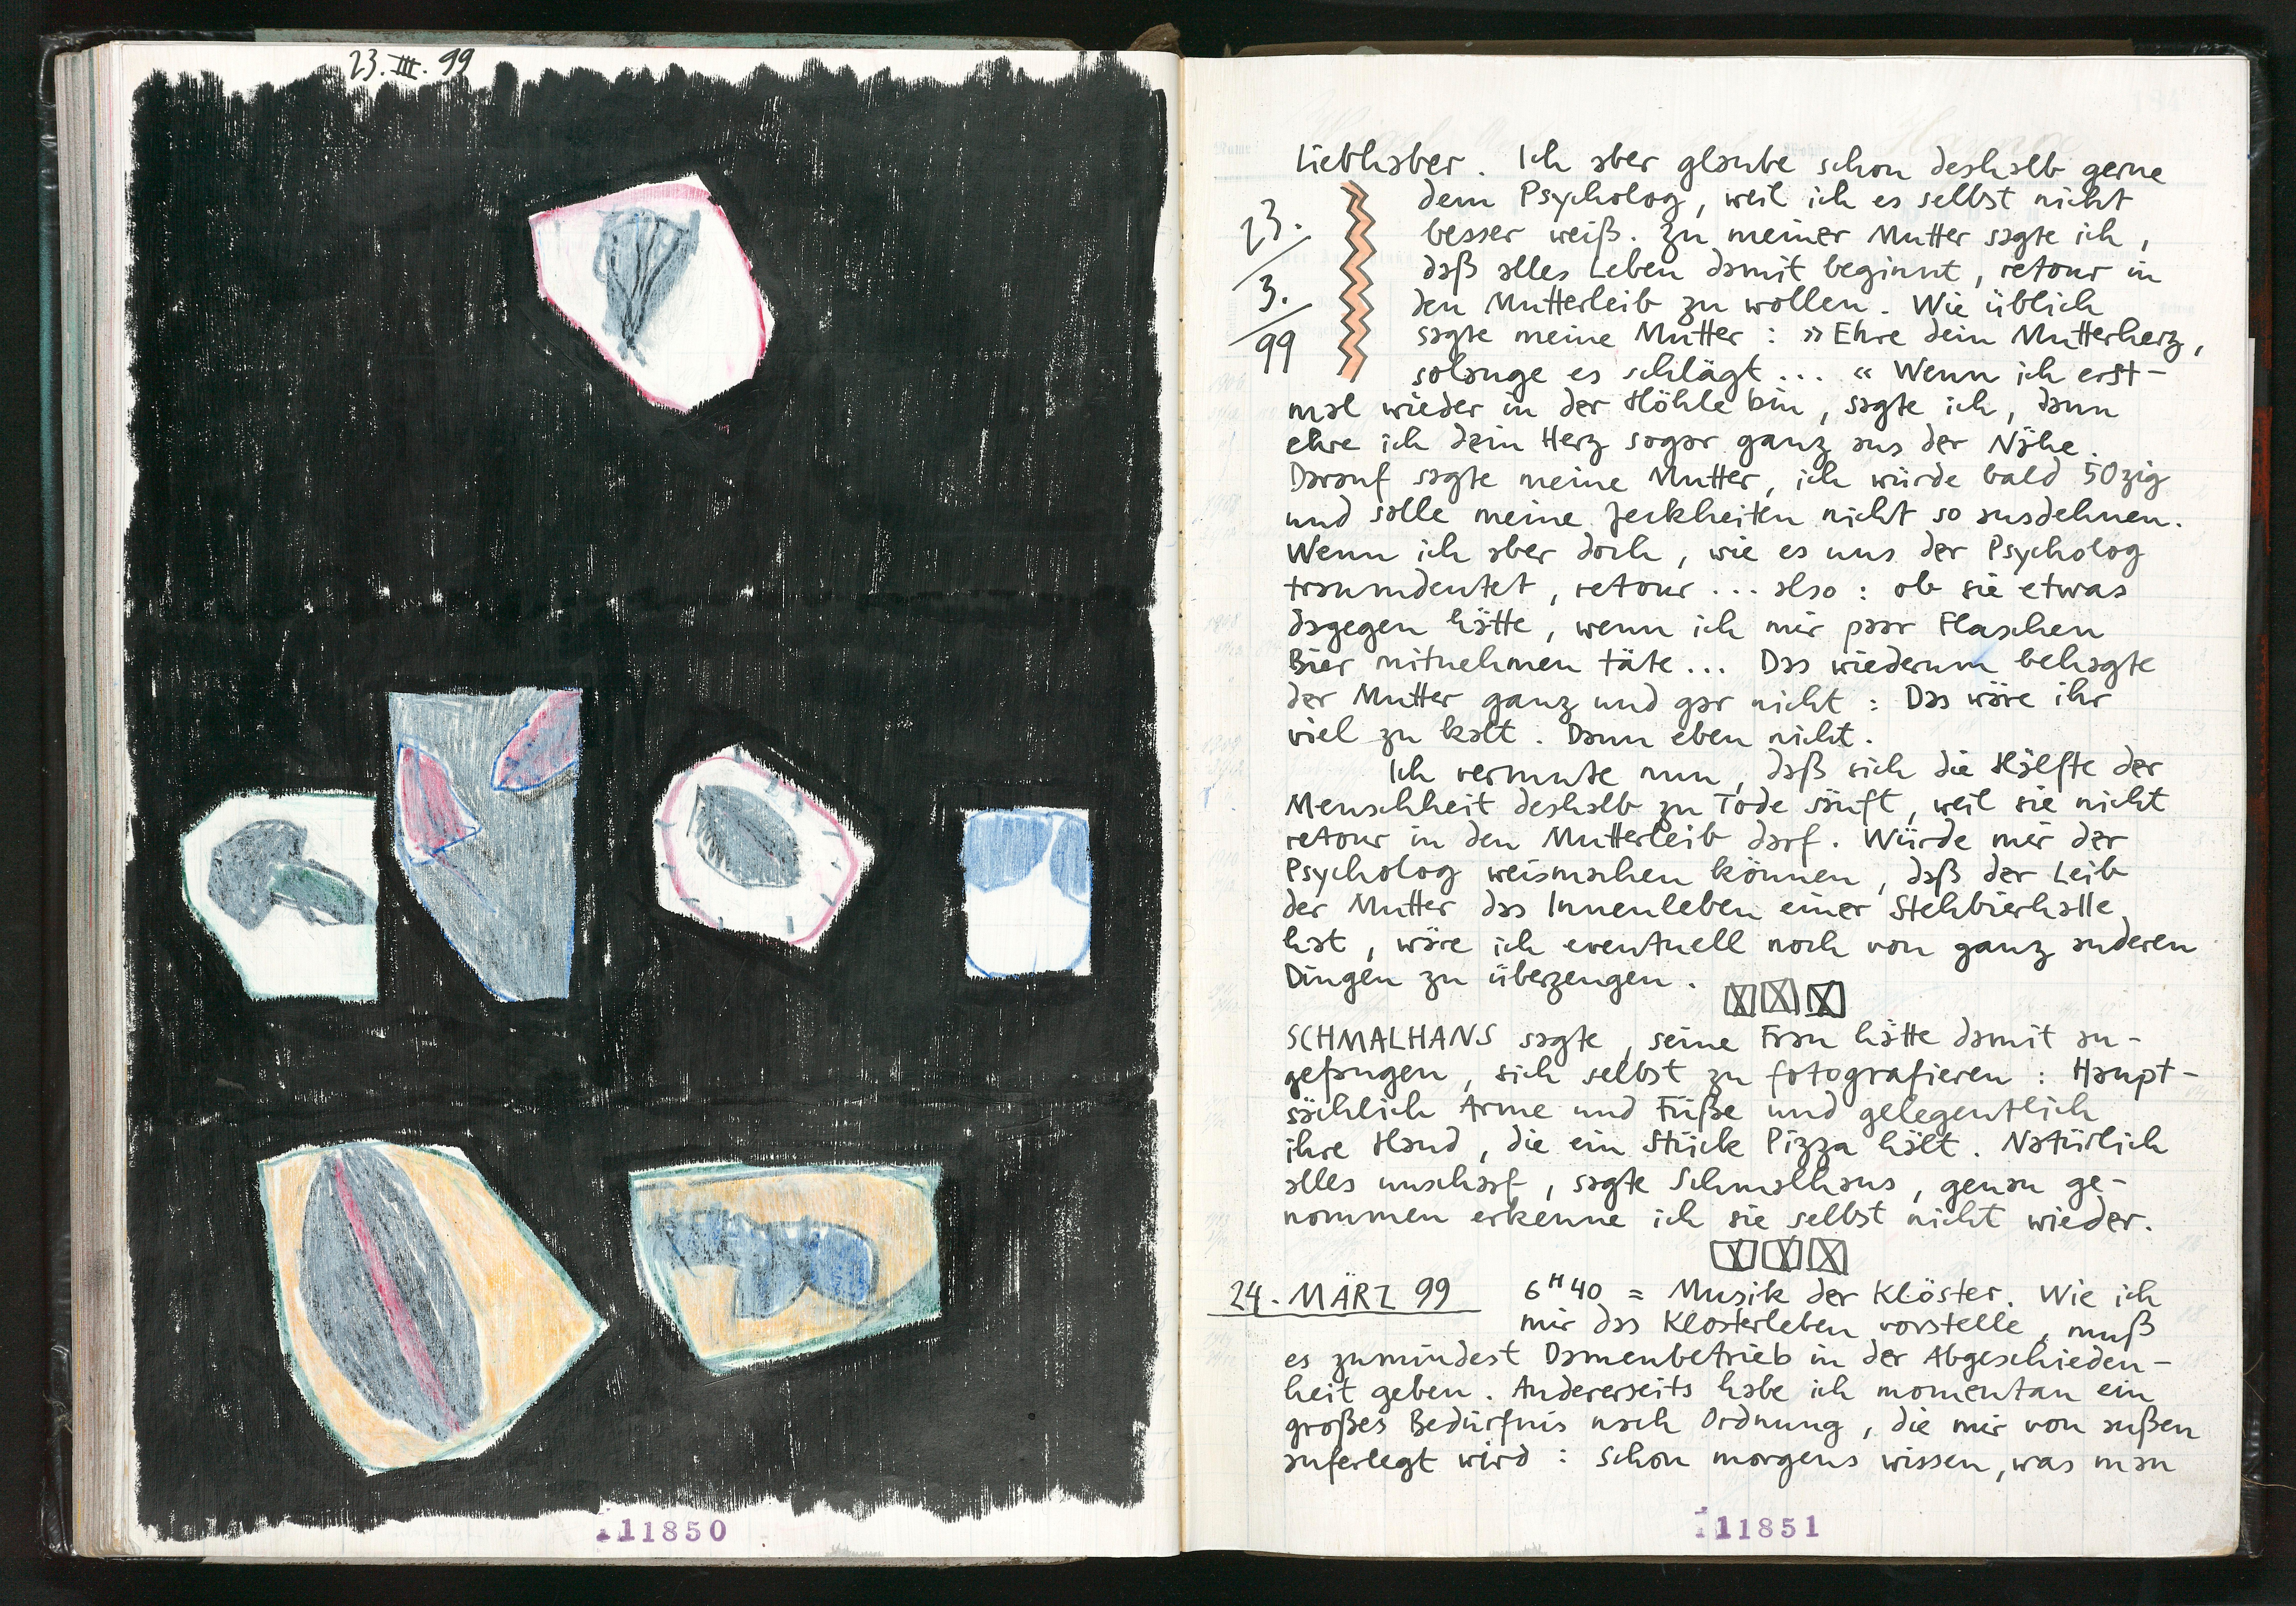 23. III. 99
111850
Liebhaber. Ich aber glaube schon deshalb gerne
dem Psycholog, weil ich es selbst nicht
besser weiß. Zu meiner Mutter sagte ich,
daß alles Leben damit beginnt, retour in
den Mutterleib zu wollen. Wie üblich
sagte meine Mutter: »Ehre dein Mutterherz,
solange es schlägt... « Wenn ich erst-
23.
3.
99
mal wieder in der Höhle bin, sagte ich, dann
ehre ich dein Herz sogar ganz aus der Nähe.
Darauf sagte meine Mutter, ich würde bald 50zig
und solle meine Jeckheiten nicht so ausdehnen.
Wenn ich aber doch, wie es uns der Psycholog
traumdeutet, retour... also: ob sie etwas
dagegen hätte, wenn ich mir paar Flaschen
Bier mitnehmen täte... Das wiederum behagte
der Mutter ganz und gar nicht: Das wäre ihr
viel zu kalt. Dann eben nicht.
Ich vermute nun, daß sich die Hälfte der
Menschheit deshalb zu Tode säuft, weil sie nicht
retour in den Mutterleib darf. Würde mir der
Psycholog weismachen können, daß der Leib
der Mutter das Innenleben einer Stehbierhalle
hat, wäre ich eventuell noch von ganz anderen
Dingen zu überzeugen.
SCHMALHANS sagte, seine Frau hätte damit an-
gefangen, sich selbst zu fotografieren: Haupt-
sächlich Arme und Füße und gelegentlich
ihre Hand, die ein Stück Pizza hält. Natürlich
alles unscharf, sagte Schmalhans, genau ge-
nommen erkenne ich sie selbst nicht wieder.
24. MÄRZ 99 6H40 = Musik der Klöster. Wie ich
mir das Klosterleben vorstelle, muß
es zumindest Damenbetrieb in der Abgeschieden-
heit geben. Andererseits habe ich momentan ein
großes Bedürfnis nach Ordnung, die mir von außen
auferlegt wird: schon morgens wissen, was man
111851